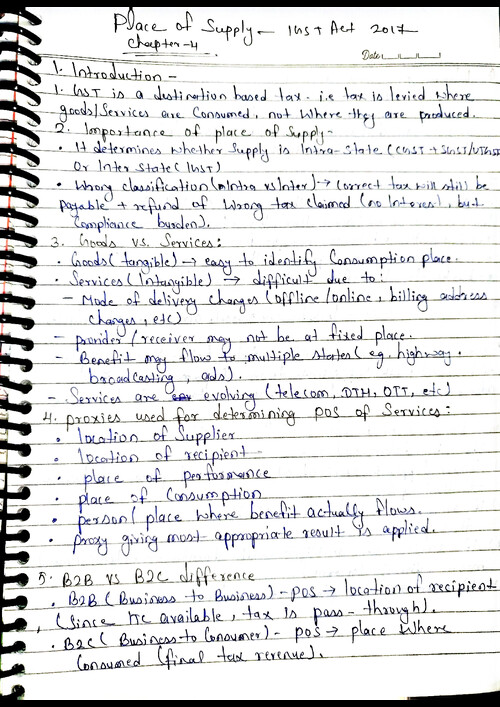 Place of Supply - IGST Act 2017
Chapter-4
Date:
1. Introduction -
1. GST is a destination based tax. i.e tax is levied where
goods/Services are Consumed, not where they are produced.
2. Importance of place of Supply-
• It determines whether Supply is Intra-state (CGST + SGST/UTGST)
Or Inter State (IGST)
• Wrong classification (Intra vs Inter) → Correct tax will still be
payable + refund of wrong tax claimed (no Interest), but
Compliance burden).
3. Goods vs. Services:
• Goods (tangible) → easy to identify Consumption place.
• Services (Intangible) → difficult due to:
- Mode of delivery changes (offline/online, billing address
changes, etc)
- provider/receiver may not be at fixed place.
- Benefit may flow to multiple states (eg. highway.
broadcasting, ads).
- Services are evolving (telecom, DTH, OTT, etc)
4. Proxies used for determining POS of Services:
• location of Supplier
• location of recipient
• place of performance
• place of Consumption
• person/place where benefit actually flows.
• Proxy giving most appropriate result is applied.
5. B2B vs B2C difference
• B2B (Business to Business) - POS → location of recipient
(Since ITC available, tax is pass-through).
• B2C (Business to Consumer) - POS → place where
Consumed (final tax revenue).